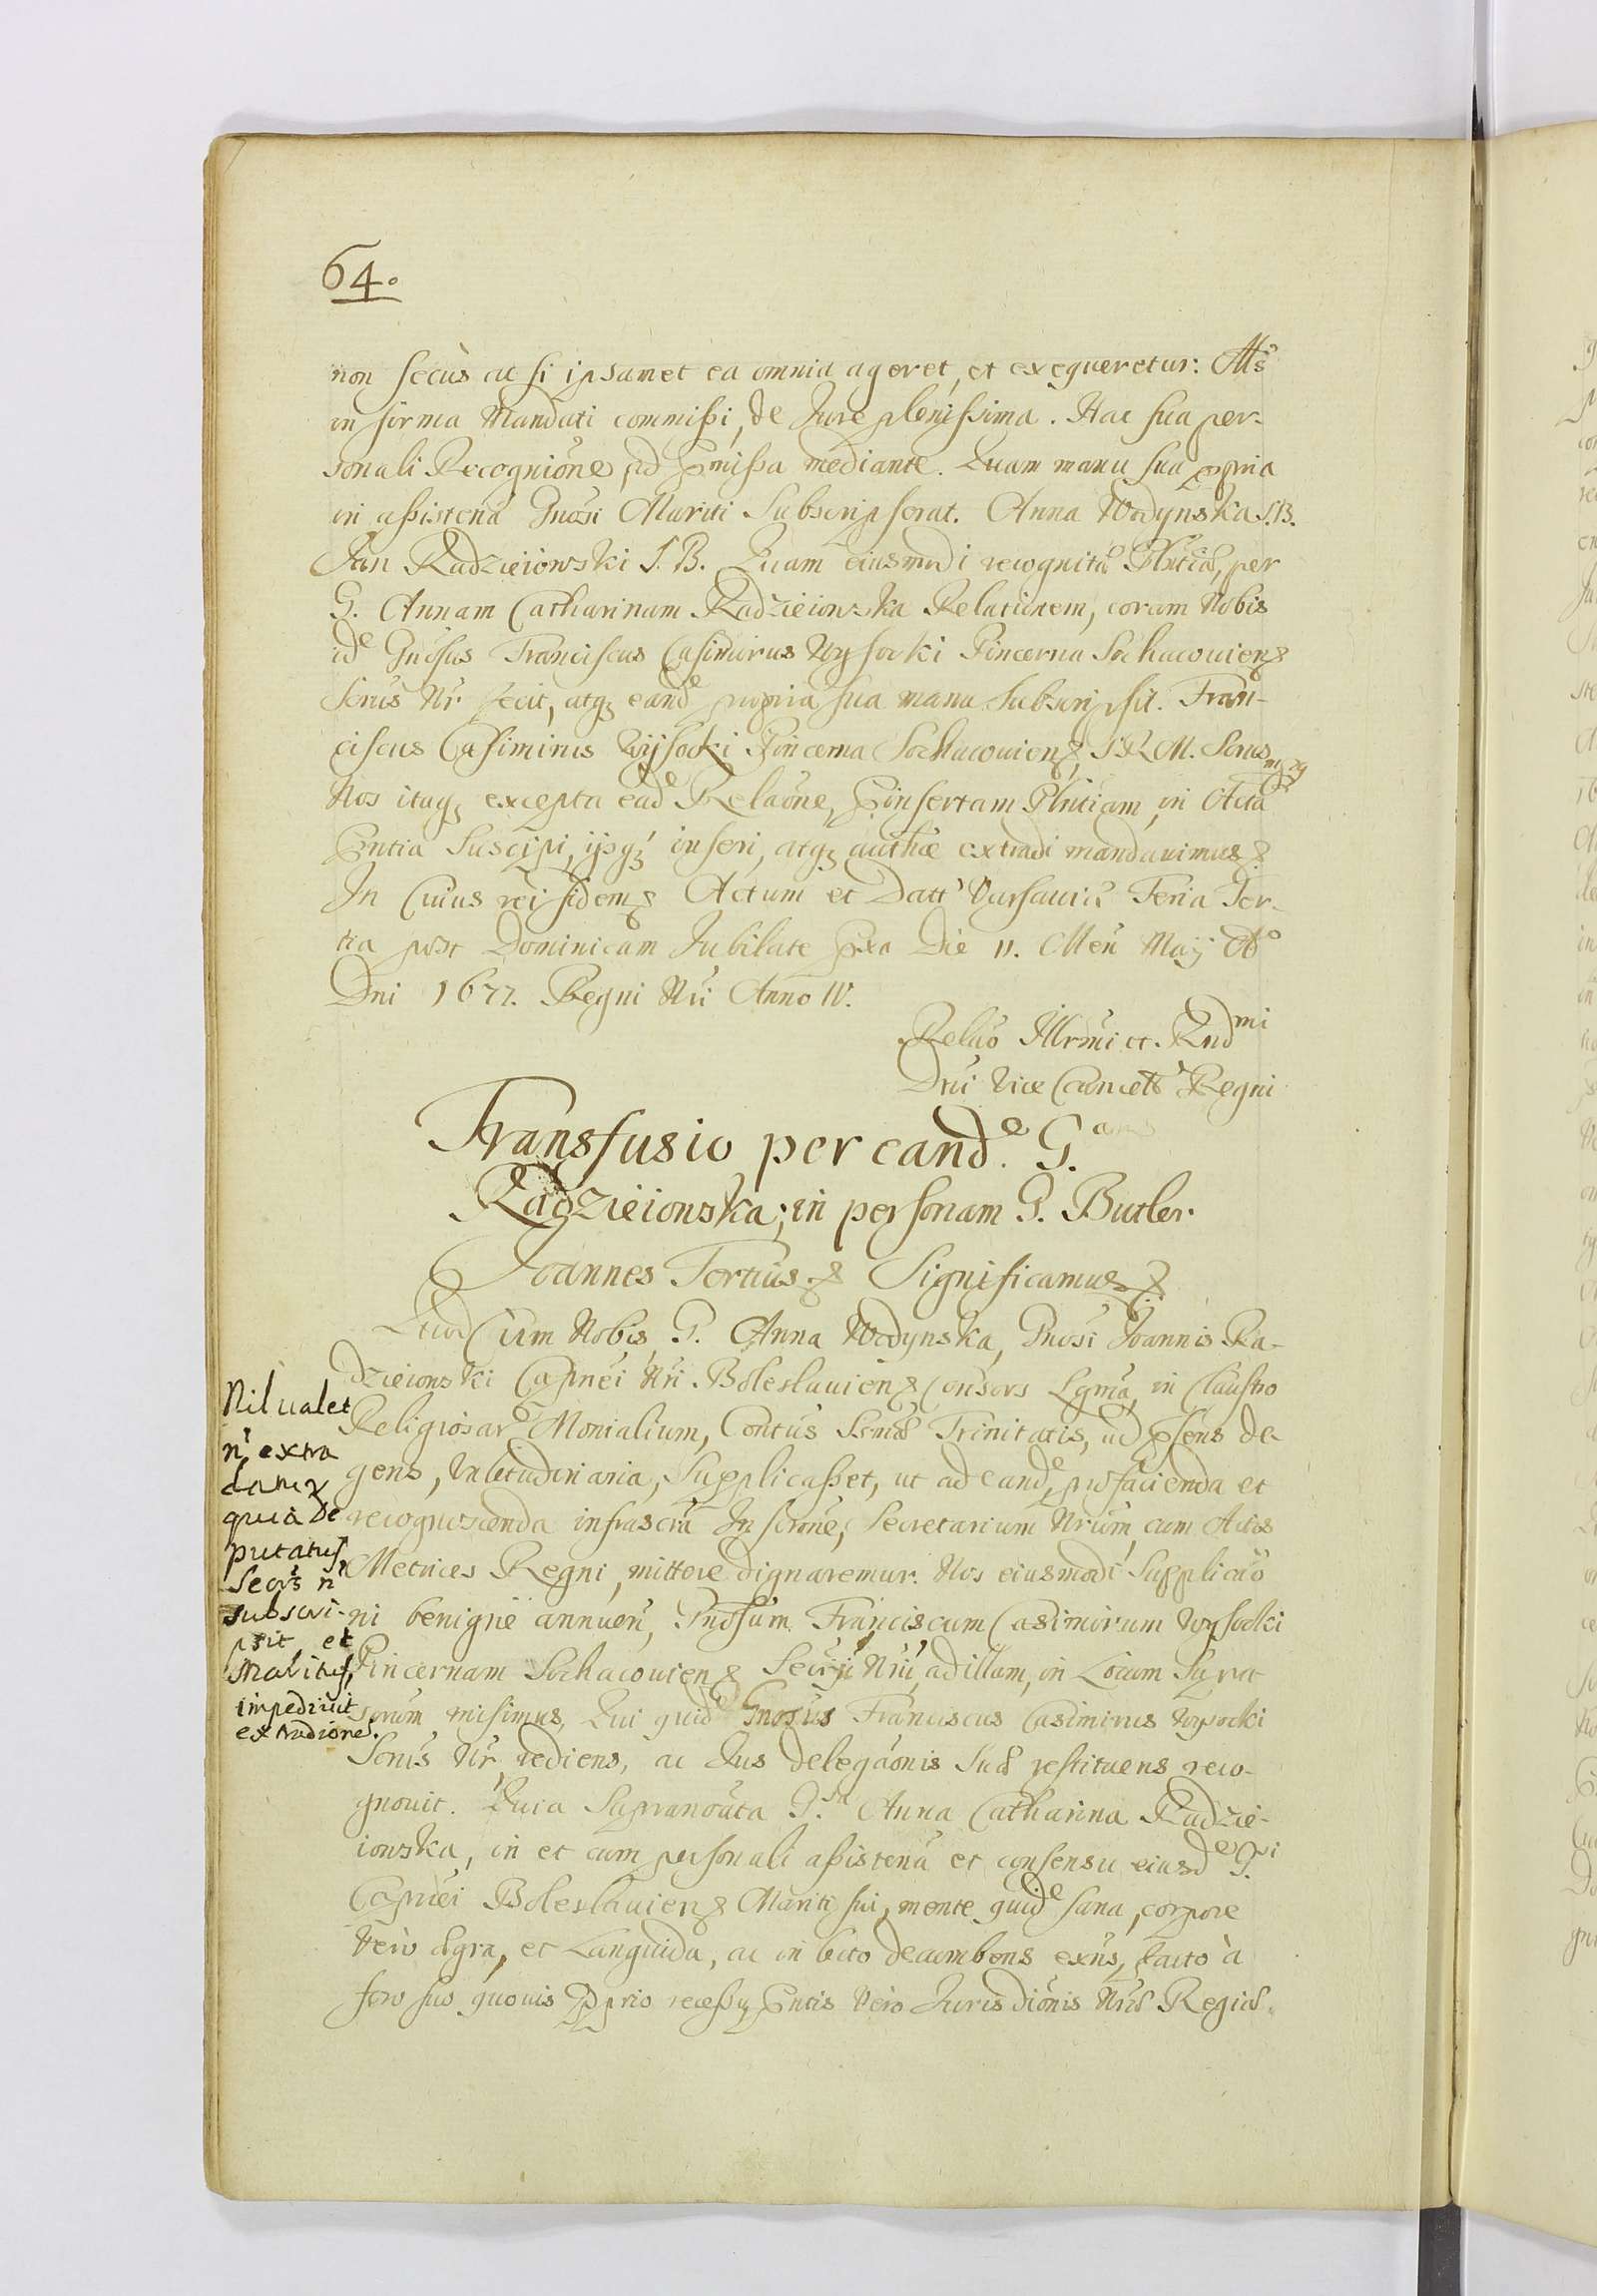 64.
non secùs ac si ipsamet ea omnia ageret, et exequeretur:
in forma Mandati commissi, de Jure plenissima. Hac sua per-
sonali Recognione id mediante. Quam manu sua ppria
in assistena Gnosi Mariti Subscripserat. Anna Wodynska S.B.
Jan Radzieiowski S. B. Quam eiusmodi recognitae Plntiae, per
G. Annam Catharinam Radzieiowska Relationem, coram Nobis
ide Gnosus Franciscus Casimirus Wysocki Pincerna Sochacouiens
Scrius Nr. fecit, atq eande propria sua manu Subscripsit. Fran-
ciscus Casimirus Wysocki Pincerna Sochacouiens, S R M. Scrius mpp
Nos itaq excepta eade Relaone, Pinsertam Plntiam, in Acta
Pntia Suscipi, ijsq inseri, atq authae extradi mandauimus
In Cuius rei fidem Actum et Datt Varsauiae Feria Ter-
tia post Dominicam Jubilate Die 11. Men Maij Ao
Dni 1677. Regni Nri Anno IV.
Relao Illrmi et Rndmi
Dni Vice Cancell Regni
Transfusio per eande. G.
Radzieiowska; in personam G. Butler.
Joannes Tertius Significamus
Quod Cum Nobis, G. Anna Wodynska, Gnosi Joannis Ra-
dzieiowski Capnei Nri Boleslauiens Consors Lgma, in Claustro
Religiosar Monialium, Contus Scmae Trinitatis, ad psens de-
gens, Valetudinaria, Supplicasset, ut ad eande, pro facienda et
recognoscenda infrascra Inscrone, Secretarium Nrum, cum Actis
Metrices Regni, mittere dignaremur. Nos eiusmodi Supplicao
ni benigne annuen, Gnosum Franciscum Casimirum Wysocki
Pincernam Sochacouiens Secrij Nrii, ad illam, in Locum Supra
scrum misimus, Qui quide Gnosus Franciscus Casimirus Wysocki
Scrius Nr, rediens, ac Jus delegaonis Suae restituens reco-
gnouit. Quia Supranouta Gsa Anna Catharina Radzie-
iowska, in et cum personali assistena et consensu eiusde Gsi
Capnei Boleslauiens Mariti sui, mente quide sana, corpore
Vero Aegra, et Languida, ac in lecto decumbens exns, facto à
foro suo quouis pprio recessu, Pntis Vero Jurisdionis Nrae Regiae
Nil ualet
n, extra
danq
quia De
putatus
Secrs n
subscri-
psit, et
Maritus
impediuit
extradione.